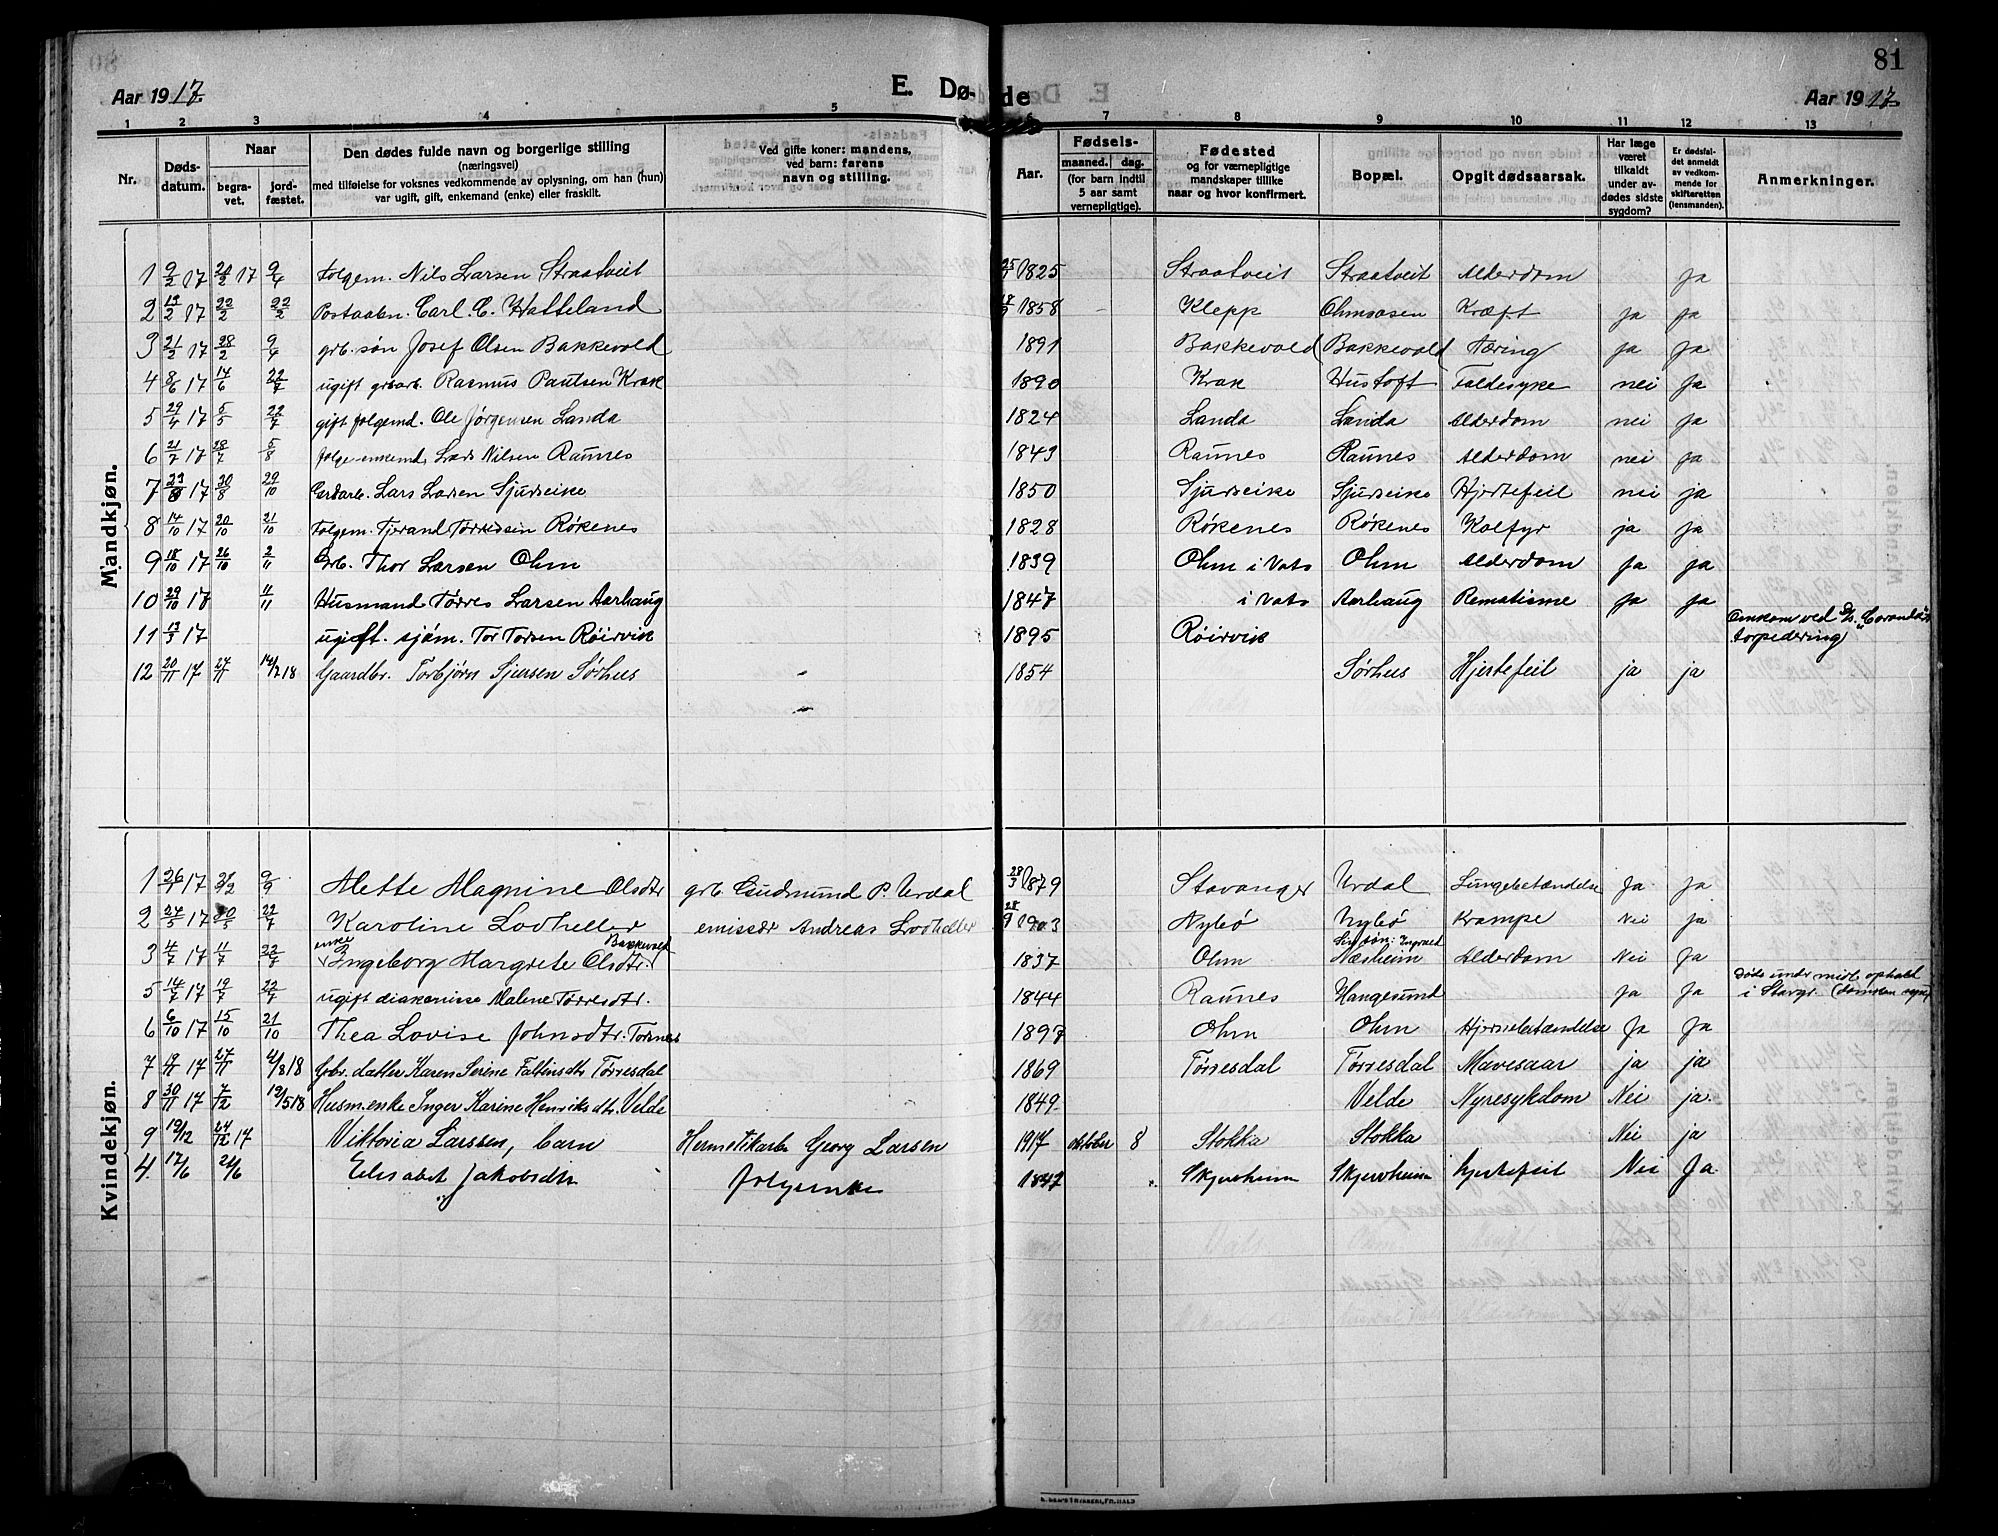 81
Aar 1917.
E. Dø- de
Aar 1917.
1 2 3 4 5 6 7 8 9 10 11 12 13
Nr.
Døds-
datum.
Naar
begra-
vet.
jord-
fæstet.
Den dødes fulde navn og borgerlige stilling
(næringsvei)
med tilføielse for voksnes vedkommende av oplysning, om han (hun)
var ugift, gift, enkemand (enke) eller fraskilt.
Ved gifte koner: mandens,
ved barn: farens
navn og stilling.
Aar.
Fødsels-
maaned. dag.
(for barn indtil
5 aar samt
vernepligtige).
Fødested
og for værnepligtige
mandskaper tillike
naar og hvor konfirmert.
Bopæl.
Opgit dødsaarsak.
Har læge
været
tilkaldt
under av-
dødes sidste
sygdom?
Er dødsfal-
det anmeldt
av vedkom-
mende for
skifteretten
(lensmanden).
Anmerkninger.
Mandkjøn.
1 9/2 17 20/2 17 9/4 Folgem. Nils Larsen Straatveit 1825 Straatveit Straatveit Alderdom Ja
2 12/2 17 22/2 22/2 Postaabn. Carl. C. Hatteland 1858 Klepp Ohmsosen Kræft Ja Ja
3 21/2 17 28/2 9/4 grb. søn Josef Olsen Bakkevold 1891 Bakkevold Bakkevold Tæring Ja Ja
4 8/6 17 14/6 22/7 ugift grdarb. Rasmus Paulsen Krak 1890 Krak Hustoft Faldesyke nei Ja
5 29/4 17 5/5 22/7 gift folgemd. Ole Jørgensen Landa 1824 Landa Landa Alderdom nei Ja
6 21/7 17 28/7 5/8 folge-enkemd. Lars Nilsen Raunes 1843 Raunes Raunes Alderdom nei Ja
7 17 30/8 29/10 Gardarb. Lars Larsen Sjurseike 1850 Sjurseike Sjurseike Hjertefeil nei ja
8 14/10 17 20/10 21/10 Folgem. Tjerand Torkelsen Røkenes 1828 Røkenes Røkenes Kolfyr ja ja
9 18/10 17 26/10 2/11 Grb. Thor Larsen Ohm 1839 Ohm i Vats Ohm Alderdom Ja ja
10 29/10 17 11/11 Husmand Tørres Larsen Aarhaug 1847 i Vats Aarhaug Rematisme Ja Ja
11 13/3 17 ugift. sjøm. Tor Torsen Røirvik 1895 Røirvik Omkom ved
torpedering)
12 20/11 17 27/11 14/7 18 Gaardbr. Torbjørn Sjursen Sørhus 1854 Sørhus Hjertefeil ja ja
Kvindekjøn.
1 26/1 17 9/9 Mette Magnine Olsdtr grb. Gudmund P. Urdal 28/3 1879 Stavanger Urdal Lungebetændelse Ja Ja
2 24/5 17 30/5 22/7 Karoline Lodheller emissær Andreas Lodheller 28/9 1903 Nybø Nybø Krampe Nei ja
enke Bakkevold
3 4/7 17 11/7 22/7 Ingeborg Margrete Olsdtr. 1837 Ohm Næsheim Alderdom Nei Ja
5 14/7 17 19/7 22/7 ugift diakonisse Malene Tørresdtr. 1844 Raunes Haugesund Ja Ja Døde under midl. ophold
i Stavgr.
6 6/10 17 15/10 21/10 Thea Lovise Johnsdtr. Tornes 1897 Ohm Ohm Hjernebetændelse Ja Ja
7 19/11 17 27/11 4/8 18 Gbr. datter Karen Serine Faltinsdtr Tørresdal 1869 Tørresdal Tørresdal Mavesaar ja ja
8 30/11 17 7/12 12/5 18 Husm. enke Inger Karine Henriksdtr. Velde 1849. Velde Nyresykdom Nei ja.
9 19/12 24/12 17 Viktoria Larssen, barn Hermetikarb Georg Larsen 1917 oktober 8 Stokka Stokka Nei ja
4. 17/6 24/6 Elisabet Jakobsdtr Folgeenke 1847 Skjerheim Skjerheim hjertefeil Nei Ja